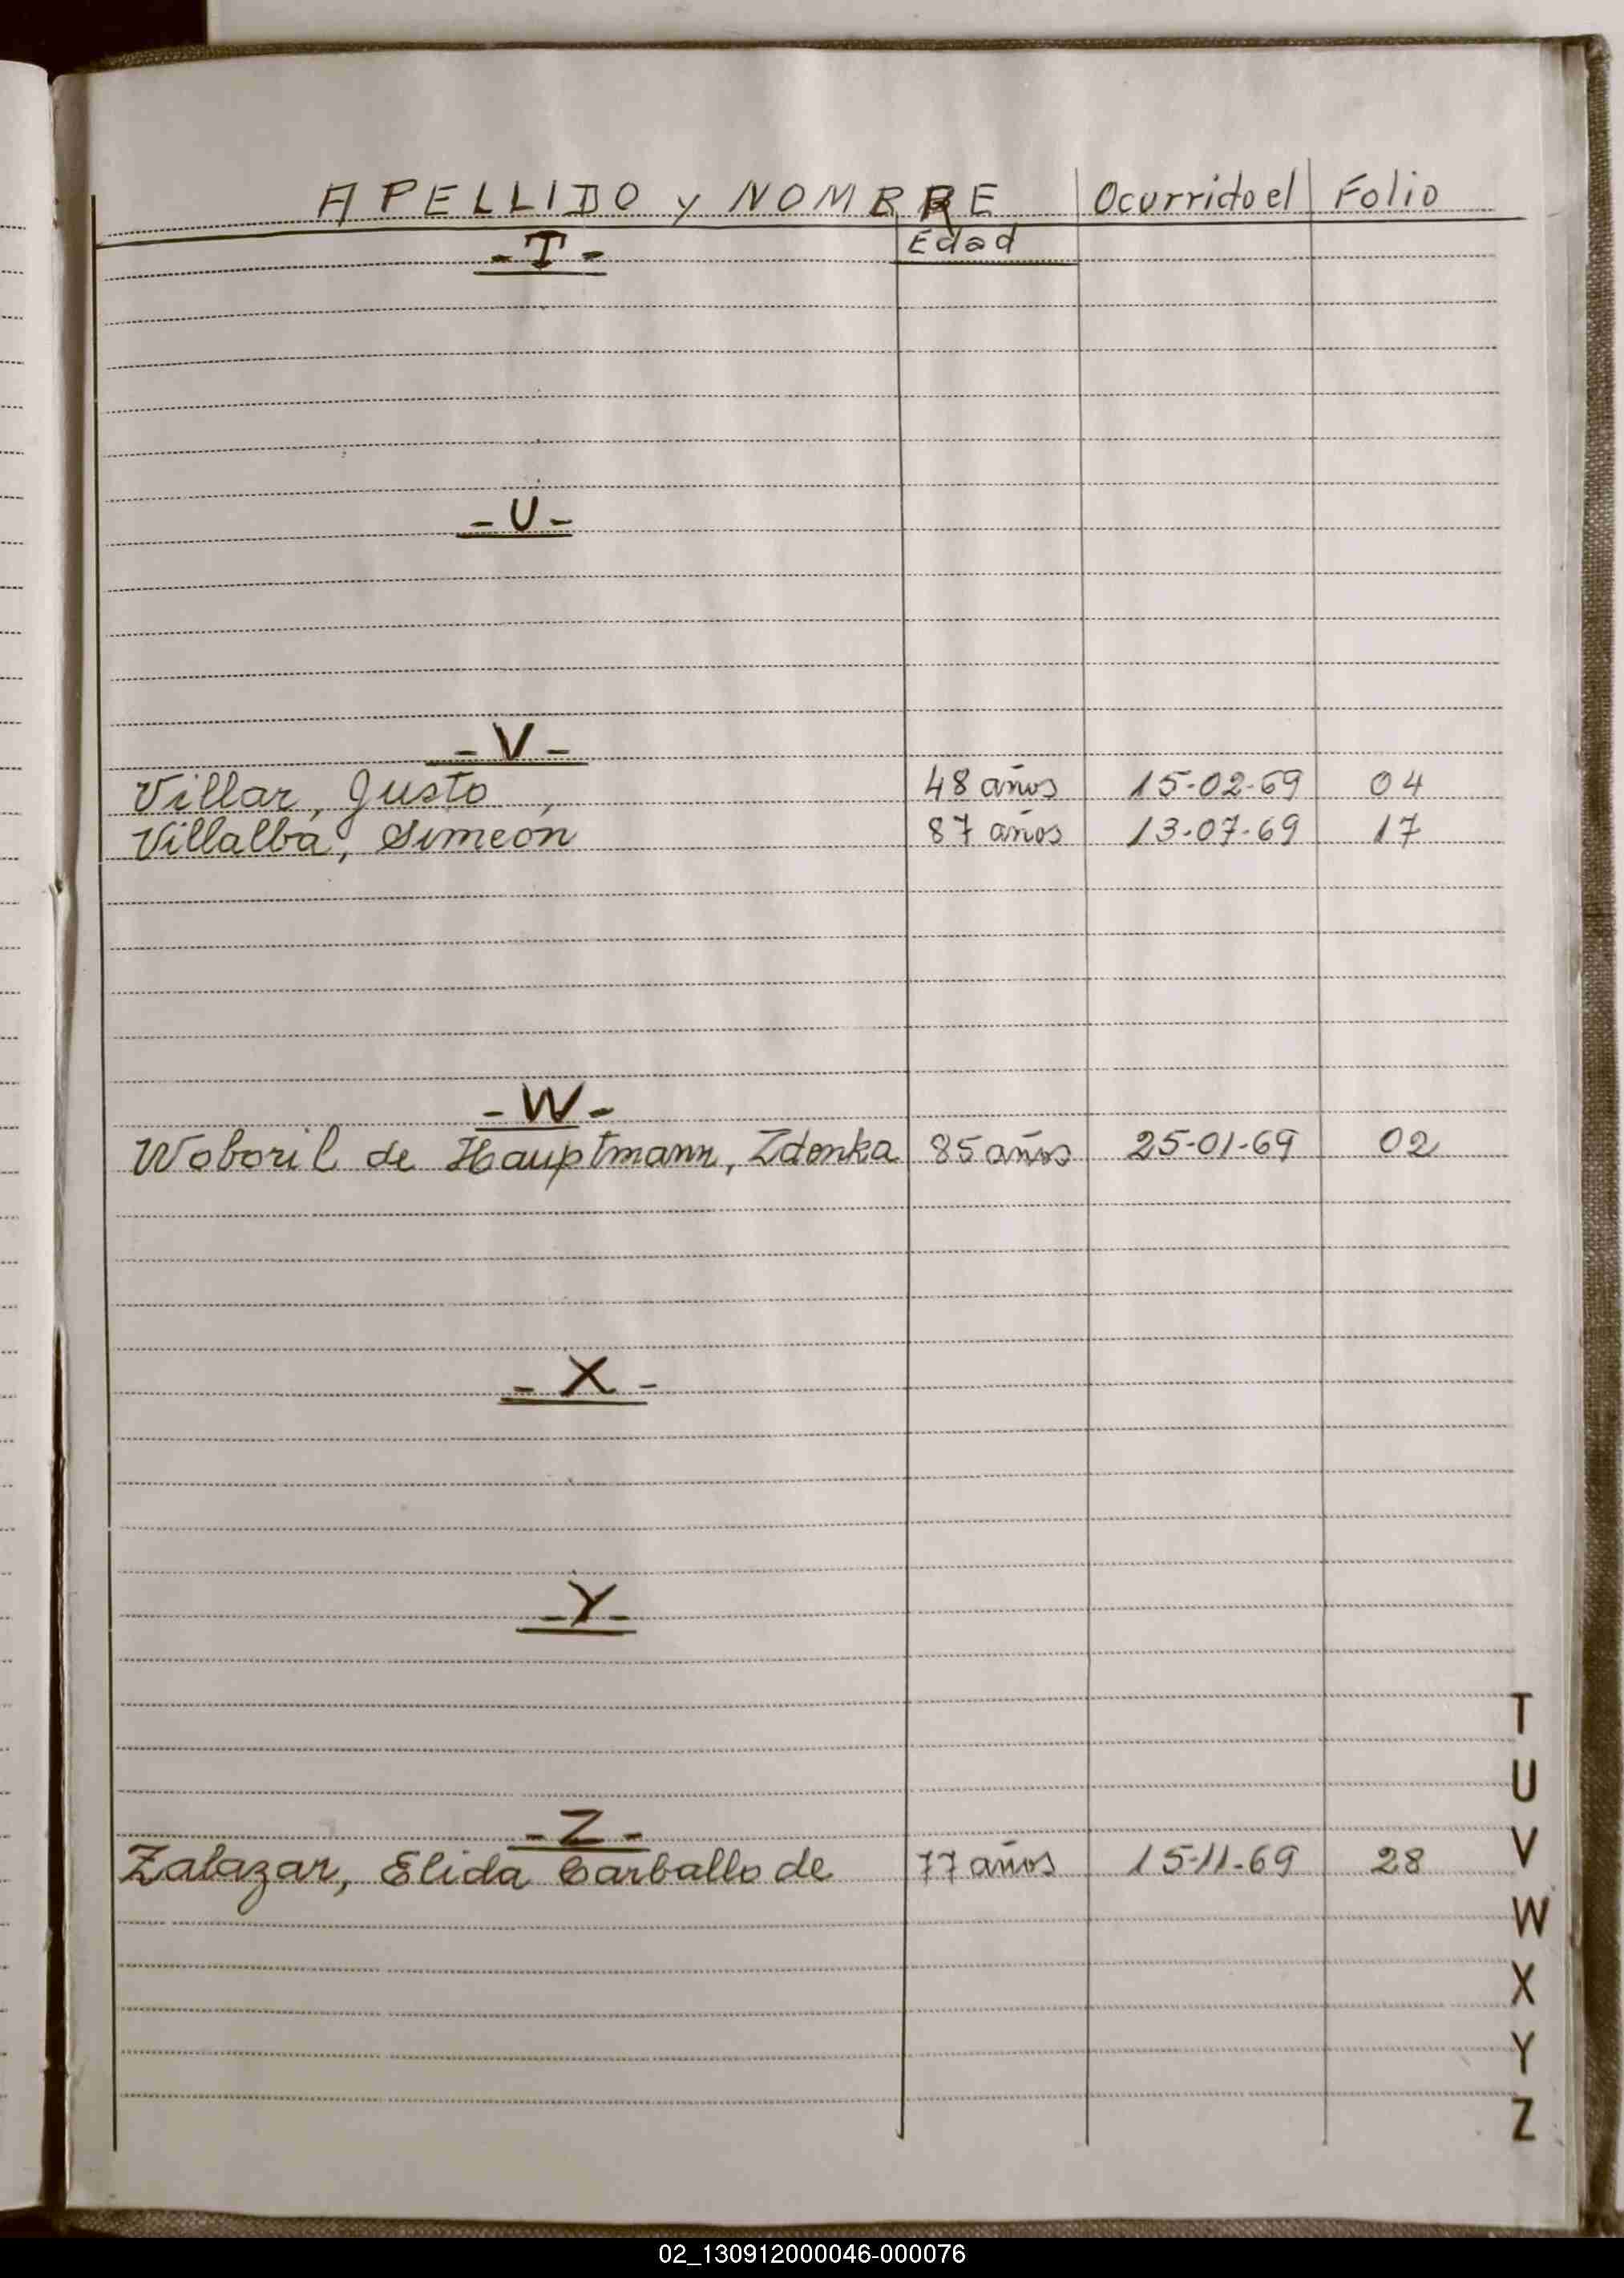 APELLIDO y NOMBRE Ocurrido el Folio
- T - Edad
- U -
- V -
Villar, Justo, 48 años 15-02-69 04
Villalba, Simeón 87 años 13-07-69 17
- W -
Woboril de Hauptmann, Zdenka 85 años 25-01-69 02
- X -
- Y -
- Z -
Zalazar, Elida Carballo de 77 años 15-11-69 28
T
U
V
W
X
Y
Z
02_130912000046-000076